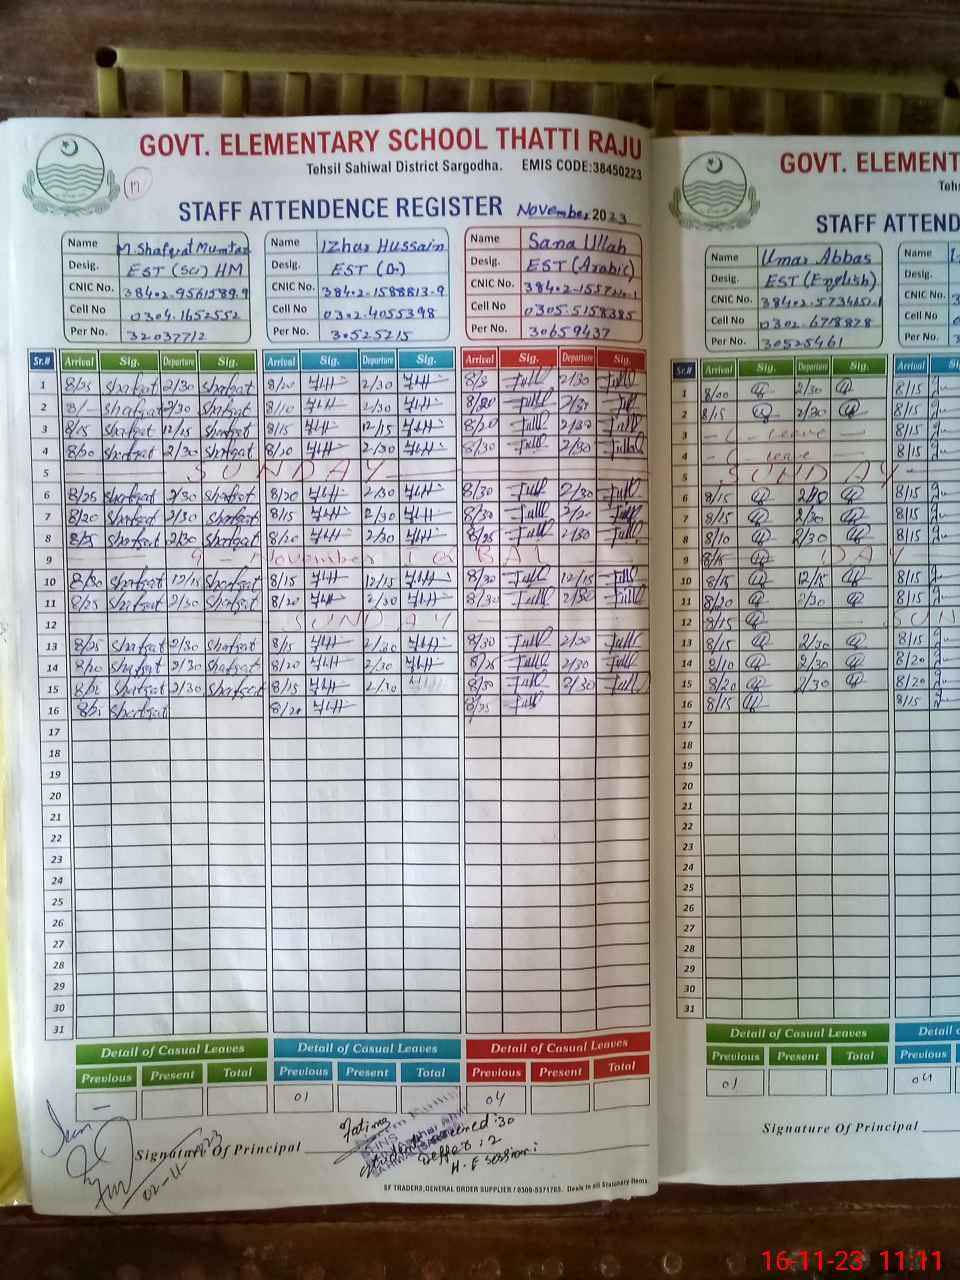 GOVT. ELEMENTARY SCHOOL THATTI RAJU
Tehsil Sahiwal District Sargodha. EMIS CODE:38450223
17
STAFF ATTENDENCE REGISTER November 2023
Name M.Shafqat Mumtaz Name Izhar Hussain Name Sana Ullah
Desig. EST (Sci) HM Desig. EST (D) Desig. EST (Arabic)
CNIC No. 38402-9561589-9 CNIC No. 38402-1588813-9 CNIC No.
Cell No 0304-1652552 Cell No 0302-4055398 Cell No 0305-5158385
Per No. 32037712 Per No. 30525215 Per No. 30659437
Sr.# Arrival Sig. Departure Sig. Arrival Sig. Departure Sig. Arrival Sig. Departure Sig.
1 8/25 Shafqat 2/30 Shafqat 8/20 2/30 2/30
2 8/- Shafqat 2/30 Shafqat 8/10 2/30 8/20 2/30
3 8/15 Shafqat 12/15 Shafqat 8/15 12/15 8/20
4 8/20 Shafqat 2/30 Shafqat 8/20 2/30 8/30 2/30
5 SUNDAY
6 8/25 Shafqat 2/30 Shafqat 8/20 2/30 8/30 2/30
7 8/20 Shafqat 2/30 Shafqat 8/15 2/30 8/30
8 8/25 Shafqat 2/30 Shafqat 8/20 2/30 8/25 2/30
9 9 - November IQBAL
10 8/20 Shafqat 12/15 Shafqat 8/15 12/15 8/30 12/15
11 8/25 Shafqat 2/30 Shafqat 8/20 2/30 8/30 2/30
12 SUNDAY
13 8/25 Shafqat 2/30 Shafqat 8/15 2/30 8/30 2/30
14 8/20 Shafqat 2/30 Shafqat 8/20 2/30 8/25 2/30
15 Shafqat 2/30 Shafqat 8/15 2/30 8/30 2/30
16 Shafqat 8/20 8/25
17
18
19
20
21
22
23
24
25
26
27
28
29
30
31
Detail of Casual Leaves Detail of Casual Leaves Detail of Casual Leaves
Previous Present Total Previous Present Total Previous Present Total
- 01 04
Signature Of Principal
02-11-2023
Fatima
Students screened: 30
Deffer: 2
H.E session:
SF TRADERS,GENERAL ORDER SUPPLIER / 0300-5371785. Deals in all Stationary Items
GOVT. ELEMENT
Teh
STAFF ATTEND
Name Umar Abbas Name
Desig. EST (English) Desig.
CNIC No. 38402-5734652-1 CNIC No.
Cell No 0302-6718878 Cell No
Per No. 30525461 Per No.
Sr.# Arrival Sig. Departure Sig. Arrival
1 8/00 2/30 8/15
2 8/15 2/30 8/15
3 - C - leave - 8/15
4 - C leave - 8/15
5 SUNDAY
6 8/15 2/30 8/15
7 8/15 2/30 8/15
8 8/10 2/30 8/15
9 8/15 DAY
10 8/15 12/15 8/15
11 8/20 2/30 8/15
12 8/15 SUN
13 8/15 2/30 8/15
14 8/10 2/30 8/20
15 8/20 2/30 8/20
16 8/15 8/15
17
18
19
20
21
22
23
24
25
26
27
28
29
30
31
Detail of Casual Leaves Detail
Previous Present Total Previous
01 04
Signature Of Principal
16-11-23 11:11